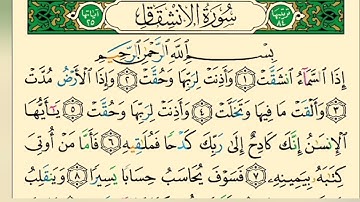 ترتيبها ٨٤ سُورَةُ الْإِنْشِقَاقِ آياتها ٢٥
بِسْمِ ٱللَّهِ ٱلرَّحْمَٰنِ ٱلرَّحِيمِ
إِذَا ٱلسَّمَآءُ ٱنشَقَّتْ ١ وَأَذِنَتْ لِرَبِّهَا وَحُقَّتْ ٢ وَإِذَا ٱلْأَرْضُ مُدَّتْ
٣ وَأَلْقَتْ مَا فِيهَا وَتَخَلَّتْ ٤ وَأَذِنَتْ لِرَبِّهَا وَحُقَّتْ ٥ يَٰٓأَيُّهَا
ٱلْإِنسَٰنُ إِنَّكَ كَادِحٌ إِلَىٰ رَبِّكَ كَدْحًا فَمُلَٰقِيهِ ٦ فَأَمَّا مَنْ أُوتِىَ
كِتَٰبَهُۥ بِيَمِينِهِۦ ٧ فَسَوْفَ يُحَاسَبُ حِسَابًا يَسِيرًا ٨ وَيَنقَلِبُ